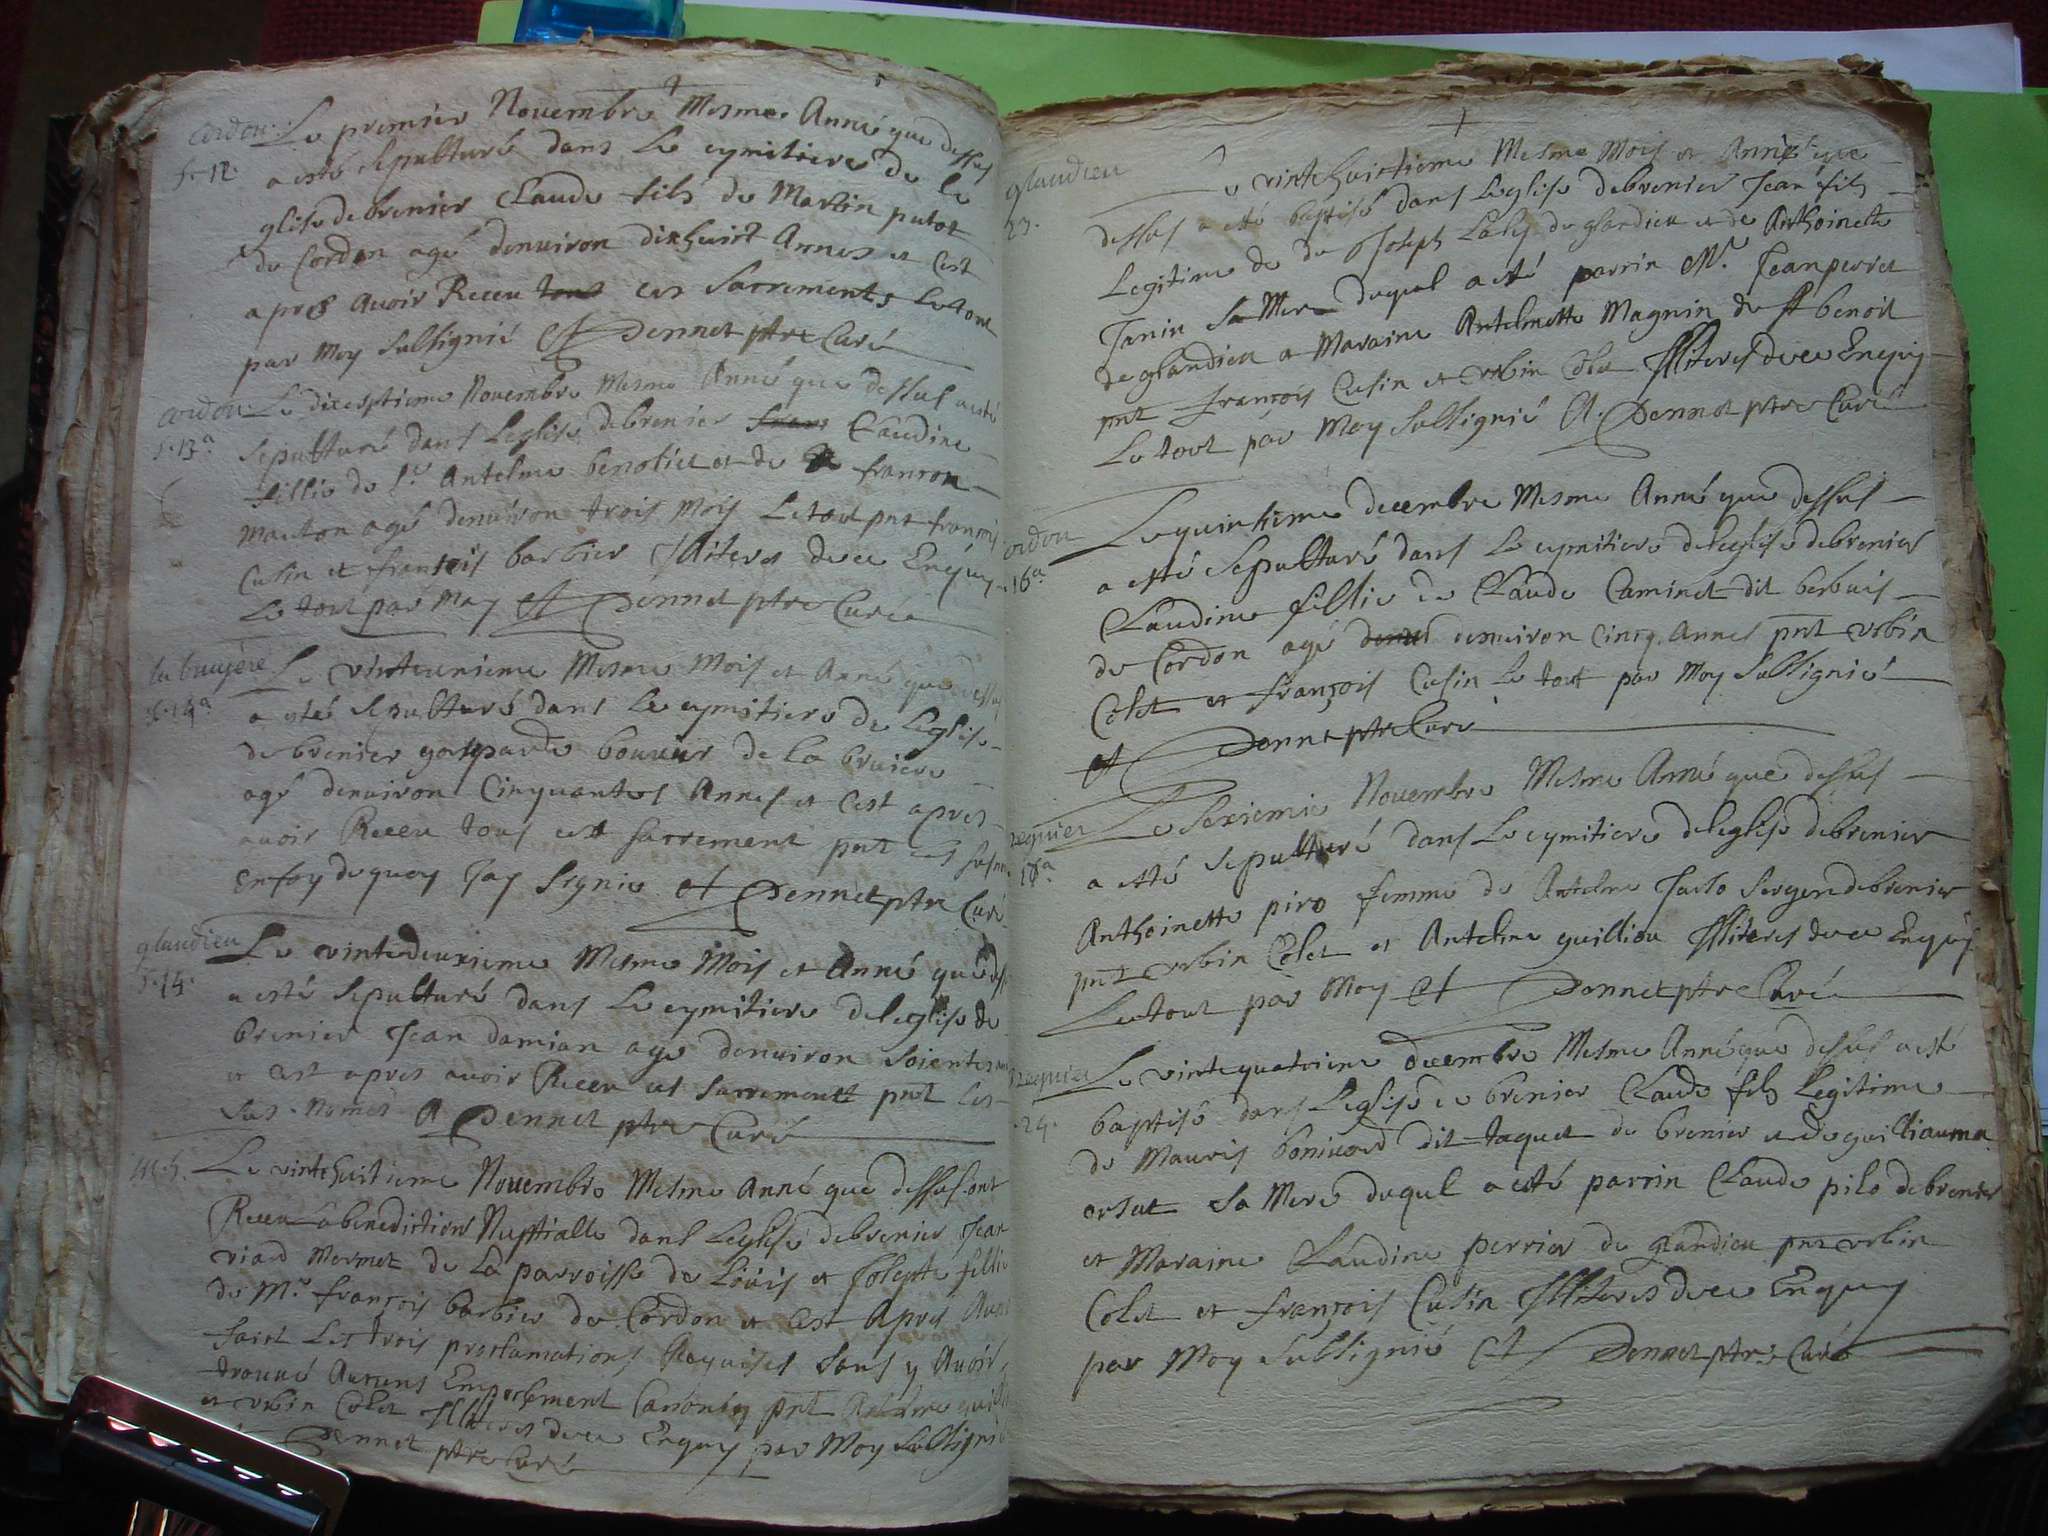 cordon Le premier Novembre Mesme Anné que dessus
s. 12. a esté sepulturé dans Le cymitiere de le
glise de brenier Claude fils de Martin putot
de Cordon agé denuiron dixhuict Annes et cest
apres Auoir Receu tous ces Sacrements Le tout
par Moy Soubsignié A Dennet ptre Curé
cordon Le diceseptieme Nouembre Mesme Anné que dessus a esté
s. 13a Sepulturé dans Leglise debrenier Claudine
fillie de Sr Antelme benolict et de francon
Mauton agé denuiron trois Mois Le tout pnt francois
Cusin et françois barbier Illiteres deee Enquis
Le tout par Moy A Dennet ptre Curé
la bruyere Le vinteunieme Mesme Mois et Anné que dessus
s. 14a a esté sepulturé dans Le cymitiere de Leglise
de brenier gasparde bouuer de la bruiere
agé denuiron Cinquantes Annes et Cest apres
auoir Receu tous cest sacrement pnt Les susn
En foy de quoy Jay Signie A Dennet ptre Curé
glandieu Le vintedeuxieme Mesme Mois et Anné que des
s. 14. a esté Sepulturé dans Le cymitiere de leglise de
brenier Jean damian agé denuiron soientes
et cest apres auoir Receu ces Sacrementt pnt Les
sus-nomes A Dennet ptre Curé
M. 5. Le vintehuitieme Nouembre Mesme Anné que dessus ont
Receu La benediction Nuptialle dans Leglise debrenier Jean
viard Mermet de La parroisse de Loüis et Josepte fillie
de Mr. françois barbier de Cordon et cest Apres Auoir
faict Les trois proclamations Requises sans y Auoir
trouué Aucuns Empechement Canoniq pnt Antelme guill
et vrbin Colet Illiteres deee Enquis par Moy Soubsignié
Dennet ptre Curé
glandieu Le vintehuictieme Mesme Mois et Anné que
23. dessus a esté baptisé dans Leglise debrenier Jean fils
Legitime de de Joseph Laby de glandieu et de Anthoinette
Janin Sa Mere duqual a esté parrin Mr. Jean perret
de glandieu a Maraine Antelmette Magnin de St benoit
pnt françois Cusin et vrbin Colet Illiteres deee Enquis
Le tout par Moy Soubsignié A. Dennet ptre Curé
cordon Le quintieme decembre Mesme Anné que dessus
16a a esté Sepulturé dans Le cymitiere de leglise debrenier
Claudine fillie de Claude Caminet dit berbuis
de Cordon agé denuiron Cincq Annes pnt vrbin
Colet et françois Cusin Le tout par Moy Soubsignié
A Dennet ptre Curé
regnier Le Sexiemie Nouembre Mesme Anné que dessus
18a a esté Sepulturé dans Le cymitiere de leglise debrenier
Anthoinette piro femme de Antelme Jarlo Sergen debrenier
pnt vrbin Colet et Antelme guilliou Illiteres deee Enquis
Le tout par Moy A Dennet ptre Curé
regnier Le vintequatrieme decembre Mesme Anné que dessus a esté
24. baptisé dans Leglise de brenier Claude fils Legitime
de Mauris boniuard dit taquet de brenier et de guilliauma
orsat Sa Mere duqul a esté parrin Claude pilo debrenier
et Maraine Claudine perrier de glandieu pnt vrbin
Colet et françois Cusin Illiteres deee Enquis
par Moy Soubsignié A Dennet ptre Curé